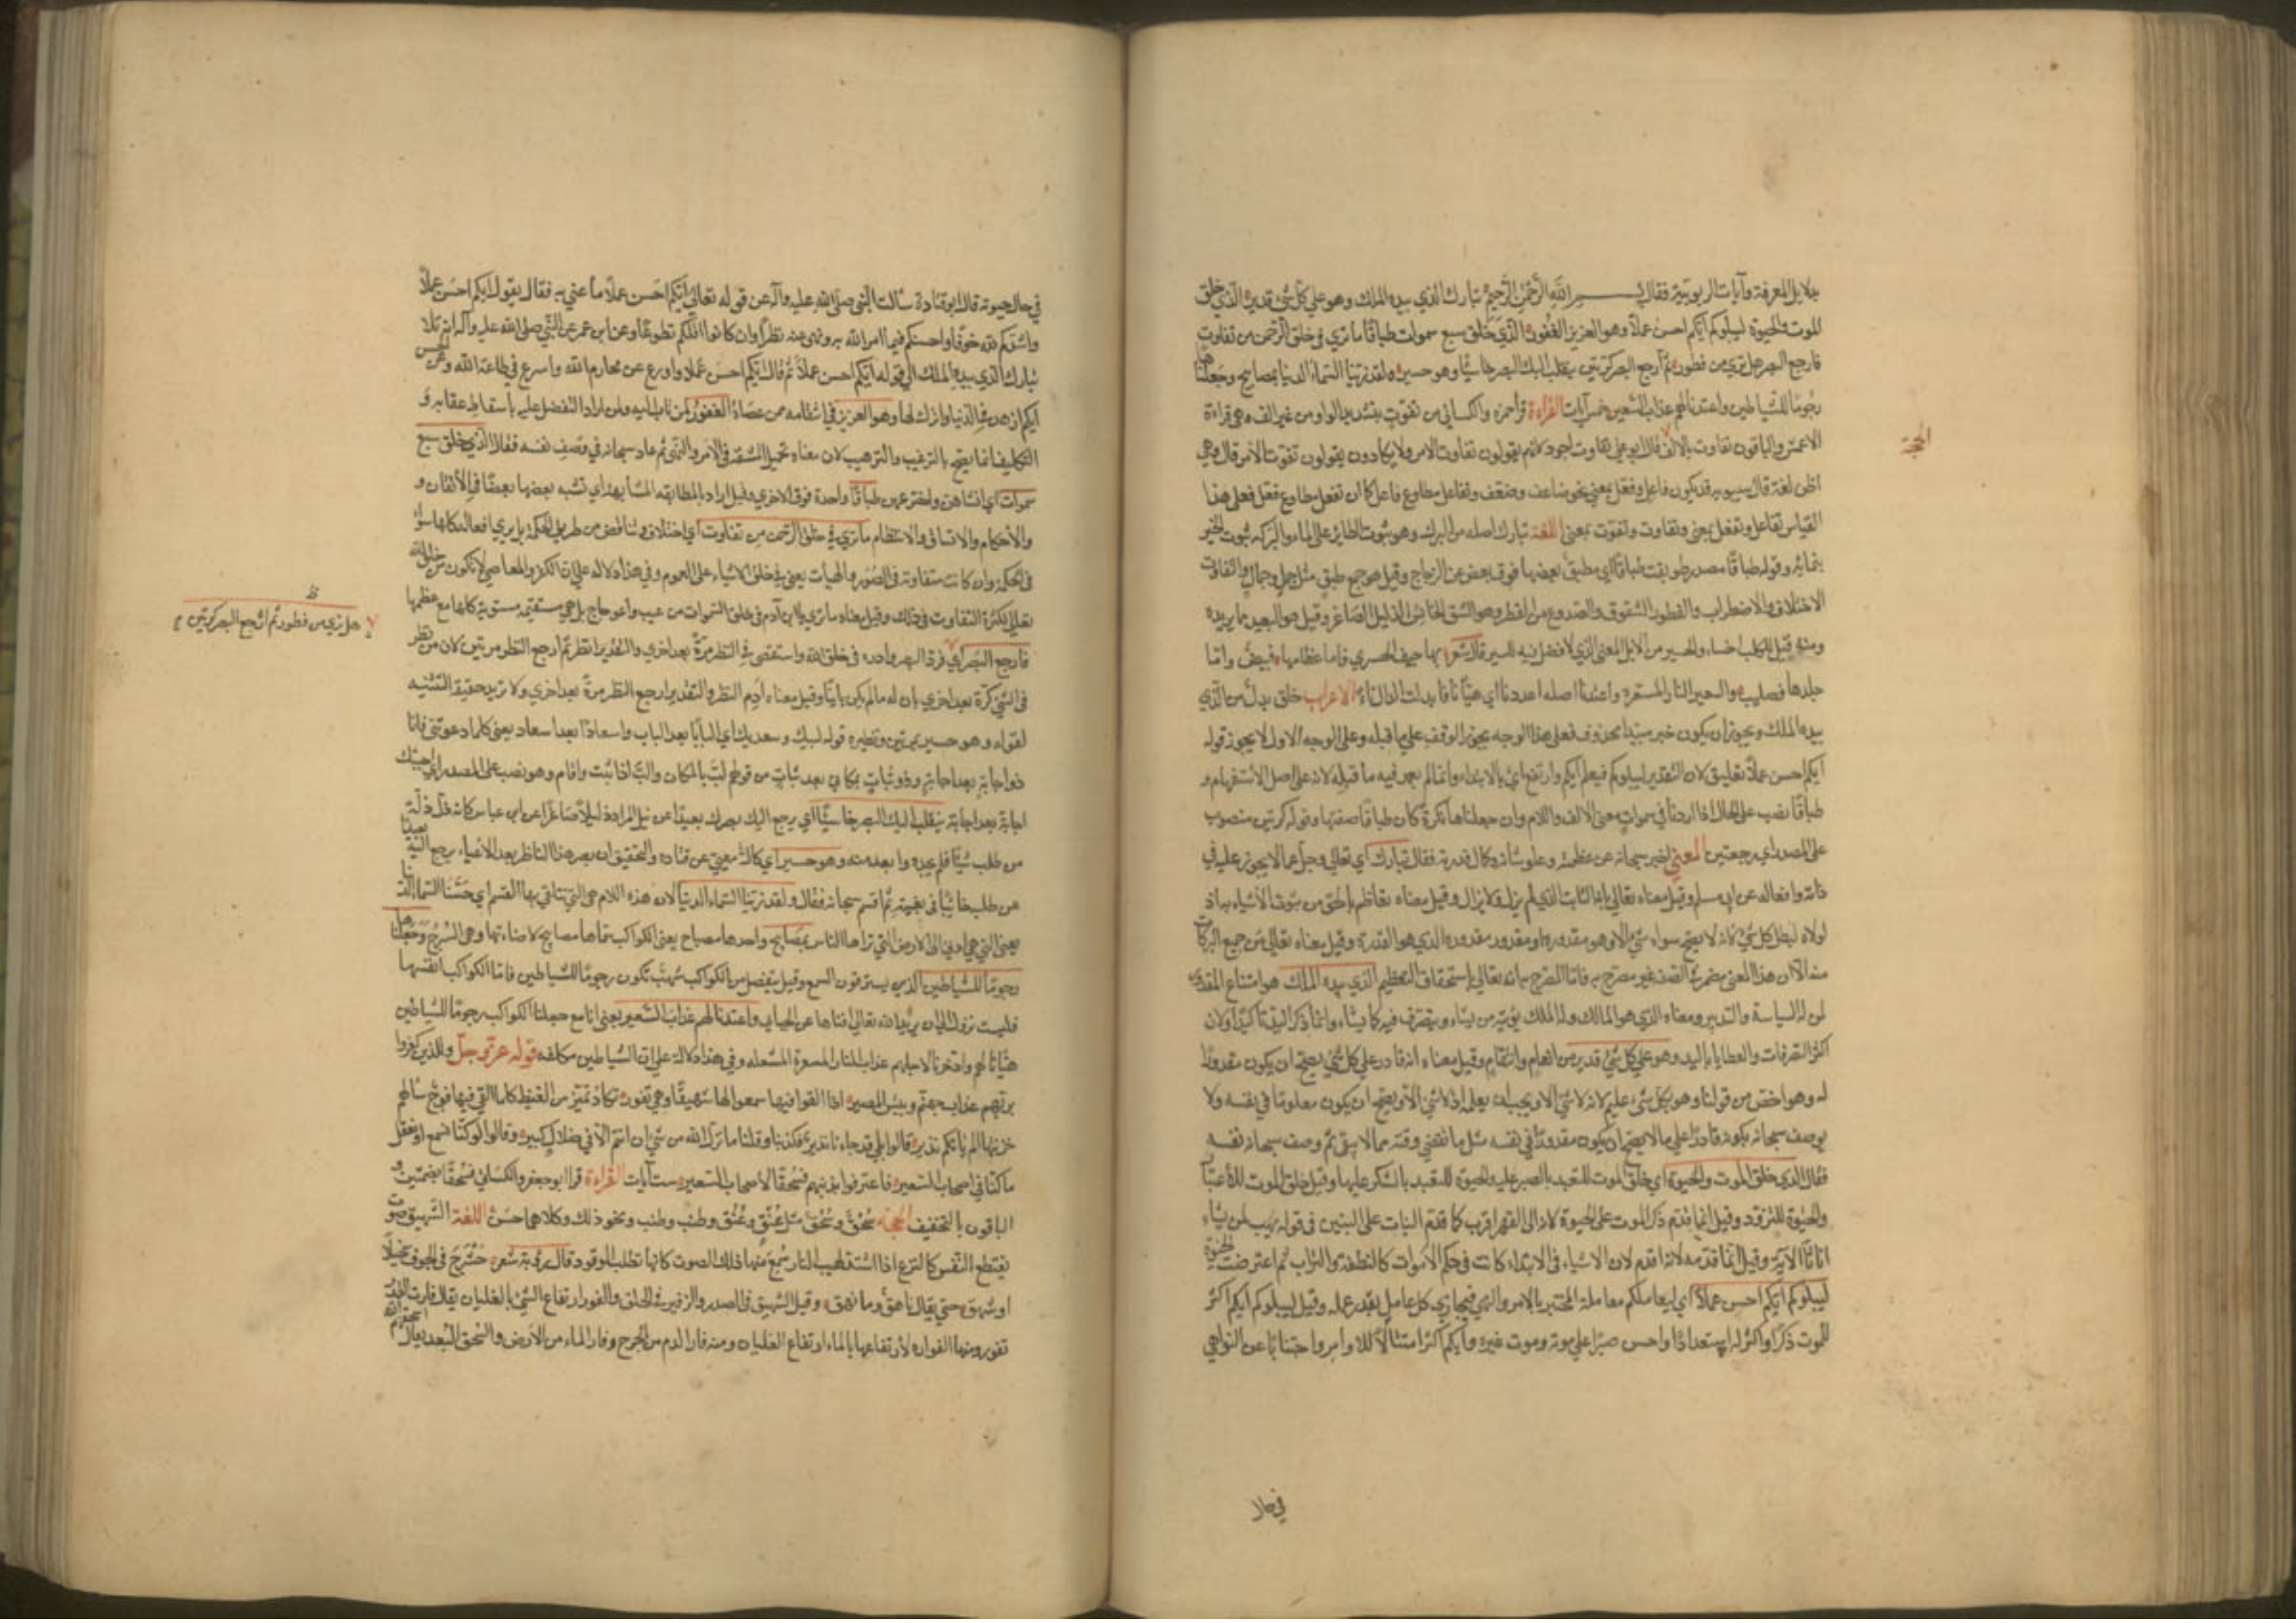 بدلايل المعرفة وآيات الربوبية فقال بسم الله الرحمن الرحيم تبارك الذي بيده الملك وهو على كل شئ قدير الذي خلق
الموت والحيوة ليبلوكم ايكم احسن عملا وهو العزيز الغفور الذي خلق سبع سموات طباقا ما ترى في خلق الرحمن من تفاوت
فارجع البصر هل ترى من فطور ثم ارجع البصر كرتين ينقلب اليك البصر خاسئا وهو حسير ولقد زينا السماء الدنيا بمصابيح وجعلناها
رجوما للشياطين واعتدنا لهم عذاب السعير خمس آيات القراءة قرا حمزه والكسائي من تفوت بتشديد الواو من غير الف وهي قراءة
الاعمش والباقون تفاوت بالالف قال ابو علي تفاوت اجود لانهم يقولون تفاوت الامر ولا يكادون يقولون تفوت الامر قال وهي
الحجة
اظن لغة قال سيبويه قد يكون فاعل وفعل بمعنى نحو ضاعف وضعف وتفاعل مطاوع فاعل كما ان تفعل مطاوع فعل فعلى هذا
القياس تفاعل وتفعل بمعنى وتفاوت وتفوت بمعنى اللغة تبارك اصله من البرك وهو ثبوت الطاير على الماء والبركة ثبوت الخير
بنمائه وقوله طباقا مصدر طوبقت طباقا اي مطبق بعضها فوق بعض عن الزجاج وقيل هو جمع طبق مثل جمل وجمال والتفاوت
الاختلاف والاضطراب والفطور الشقوق والصدوع من الفطر وهو الشق الخاسئ الذليل الصاغر وقيل هو البعيد مما يريده
ومنه قيل للكلب اخسأ والحسير من الابل المعيي الذي لا فضل فيه للسير قال شعر بها جيف الحسرى فاما عظامها فبيض واما
جلدها فصليب والسعير النار المستعرة واعتدنا اصله اعددنا اي هيأنا فابدلت الدال تاء الاعراب خلق بدل من الذي
بيده الملك ويجوز ان يكون خبر مبتدأ محذوف فعلى هذا الوجه يجوز الوقف على ما قبله وعلى الوجه الاول لا يجوز قوله
ايكم احسن عملا تعليق لان التقدير ليبلوكم فيعلم ايكم وارتفع اي بالابتداء وانما لم يعمل فيه ما قبله لانه على اصل الاستفهام و
طباقا نصب على الحال اذا اردنا في سموات معنى الالف واللام وان جعلناها نكرة كان طباقا صفتها وقوله كرتين منصوب
على المصدر اي رجعتين المعنى اخبر سبحانه عن عظمته وعلو شانه وكمال قدرته فقال تبارك اي تعالى وجل عما لا يجوز عليه في
ذاته وافعاله عن ابي مسلم وقيل معناه تعالى بانه الثابت الذي لم يزل ولا يزال وقيل معناه تعاظم بالحق من ثبوت الاشياء به اذ
لولاه لبطل كل شئ لانه لا يصح سواه شئ الا وهو مقدوره او مقدور مقدوره الذي هو القدرة وقيل معناه تعالى من جميع البركات
منه الا ان هذا المعنى مضمر في الصفة غير مصرح به فاما المصرح به انه تعالى باستحقاق التعظيم الذي بيده الملك هو اتساع المقدور
لمن له السياسة والتدبير ومعناه الذي هو المالك وله الملك يؤتيه من يشاء ويتصرف فيه كما يشاء وانما ذكر اليد تاكيدا ولان
اكثر التصرفات والعطايا باليد وهو على كل شئ قدير من انعام وانتقام وقيل معناه انه قادر على كل شئ يصح ان يكون مقدورا
له وهو اخص من قولنا وهو بكل شئ عليم لانه لا شئ الا ويجب ان يعلمه اذ لا شئ الا ويصح ان يكون معلوما في نفسه ولا
يوصف سبحانه بكونه قادرا على ما لا يصح ان يكون مقدورا في نفسه مثل ما تقضى وقته مما لا يبقى ثم وصف سبحانه نفسه
فقال الذي خلق الموت والحيوة اي خلق الموت للتعبد بالصبر عليه والحيوة للتعبد بالشكر عليها وقيل خلق الموت للاعتبار
والحيوة للتزود وقيل انما قدم ذكر الموت على الحيوة لانه الى القهر اقرب كما قدم البنات على البنين في قوله يهب لمن يشاء
اناثا الآية وقيل انما قدمه لانه اقدم لان الاشياء في الابتداء كانت في حكم الاموات كالنطفة والتراب ثم اعترضت الحيوة
ليبلوكم ايكم احسن عملا اي ليعاملكم معاملة المختبر بالامر والنهي فيجازي كل عامل بقدر عمله وقيل ليبلوكم ايكم اكثر
للموت ذكرا واكثر له استعدادا واحسن صبرا على موته وموت غيره وايكم اكثر امتثالا للاوامر واجتنابا عن النواهي
في حال
في حال حيوته قال ابو قتادة سالت النبي صلى الله عليه وآله عن قوله تعالى ايكم احسن عملا ما عني به فقال يقول ايكم احسن عملا
واشدكم لله خوفا واحسنكم فيما امر الله به ونهى عنه نظرا وان كانوا اقلكم تطوعا وعن ابن عمر عن النبي صلى الله عليه وآله انه تلا
تبارك الذي بيده الملك الى قوله ايكم احسن عملا ثم قال ايكم احسن عملا واورع عن محارم الله واسرع في طاعة الله وعن الحسن
ايكم ازهد في الدنيا واترك لها وهو العزيز في انتقامه ممن عصاه الغفور لمن تاب اليه ولمن اراد التفضل عليه باسقاط عقابه و
التكليف انما يصح بالترغيب والترهيب لان معناه تحمل المشقة في الامر والنهي ثم عاد سبحانه في وصف نفسه فقال الذي خلق سبع
سموات اي انشاهن واخترعهن طباقا واحدة فوق الاخرى وقيل اراد بالمطابقة المشابهة اي تشبه بعضها بعضا في الاتقان و
والاحكام والاتساق والانتظام ما ترى في خلق الرحمن من تفاوت اي اختلاف وتناقض من طريق الحكمة بل يرى افعاله كلها سواء
في الحكمة وان كانت متفاوتة في الصور والهيات يعني في خلق الاشياء على العموم وفي هذا دلالة على ان الكفر والمعاصي لا تكون من خلق الله
تعالى لكثرة التفاوت في ذلك وقيل معناه ما ترى يا ابن آدم في خلق السموات من عيب واعوجاج بل هي مستقيمة مستوية كلها مع عظمها
فارجع البصر اي فرد البصر وادره في خلق الله واستقص في النظر مرة بعد اخرى والتقدير انظر ثم ارجع النظر مرتين لان من نظر
ظ
هل ترى من فطور ثم ارجع البصر كرتين
في الشئ كرة بعد اخرى بان له ما لم يكن باينا وقيل معناه ادم النظر والتقدير ارجع النظر مرة بعد اخرى ولا تريد حقيقة التثنية
لقوله وهو حسير ونظيره قوله لبيك وسعديك اي البابا بعد الباب واسعادا بعد اسعاد يعني كلما دعوتني فانا
ذو اجابة بعد اجابة وذو ثبات بمكاني بعد ثبات من قولهم لب بالمكان والب اذا ثبت واقام وهو نصب على المصدر اي اجيبك
اجابة بعد اجابة ينقلب اليك البصر خاسئا اي يرجع اليك بصرك بعيدا عن نيل المراد ذليلا صاغرا عن ابن عباس كانه ذل ذلة
من طلب شيئا فلم يجده وابعد منه وهو حسير اي كال معيي عن قتاده والتحقيق ان بصر هذا الناظر بعد الاعياء يرجع اليه بعيدا
عن طلبه خائبا في بغيته ثم اقسم سبحانه فقال ولقد زينا السماء الدنيا لان هذه اللام هي التي يتلقى بها القسم اي حسنا السماء الدنيا
يعني التي هي ادنى الى الارض التي تراها الناس بمصابيح واحدها مصباح يعني الكواكب سماها مصابيح لاضاءتها وهي السرج وجعلناها
رجوما للشياطين الذين يسترقون السمع وقيل ينفصل من الكواكب شهب تكون رجوما للشياطين فاما الكواكب انفسها
فليست تزول الى ان يريد الله تعالى افناها عن الجبائي واعتدنا لهم عذاب السعير يعني انا مع جعلنا الكواكب رجوما للشياطين
هيأنا لهم وادخرنا لاجلهم عذاب النار المسعرة المشعله وفي هذا دلالة على ان الشياطين مكلفه قوله عز وجل وللذين كفروا
بربهم عذاب جهنم وبئس المصير اذا القوا فيها سمعوا لها شهيقا وهي تفور تكاد تميز من الغيظ كلما القي فيها فوج سالهم
خزنتها الم ياتكم نذير قالوا بلى قد جاءنا نذير فكذبنا وقلنا ما نزل الله من شئ ان انتم الا في ضلال كبير وقالوا لو كنا نسمع او نعقل
ما كنا في اصحاب السعير فاعترفوا بذنبهم فسحقا لاصحاب السعير ست آيات القراءة قرا ابو جعفر والكسائي فسحقا بضمتين و
الباقون بالتخفيف الحجة سحق وسحق مثل عنق وعنق وطنب وطنب ونحو ذلك وكلاهما حسن اللغة الشهيق صوت
تقطع النفس كالنزع اذا اشتد لهيب النار سمع منها ذلك الصوت كانها تطلب الوقود قال رؤبة شعر حشرج في الجوف سحيلا
او شهق حتى يقال ناهق وما نهق وقيل الشهيق في الصدر والزفير في الحلق والفور ارتفاع الشئ بالغليان يقال فارت القدر
تفور ومنه الفواره لارتفاعها بالماء ارتفاع الغليان ومنه فار الدم من الجرح وفار الماء من الارض والسحق البعد يقال اسحقهم الله